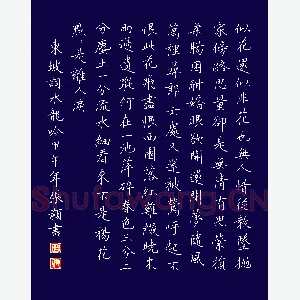 似花還似非花也無人惜從教墜拋
家傍路思量卻是無情有思縈損
柔腸困酣嬌眼欲開還閉夢隨風
萬里尋郎去處又還被鶯呼起不
恨此花飛盡恨西園落紅難綴曉來
雨過遺蹤何在一池萍碎春色三分二
分塵土一分流水細看來不是楊花
點點是離人淚
東坡詞水龍吟甲午年 顏書
Shufawang.CN